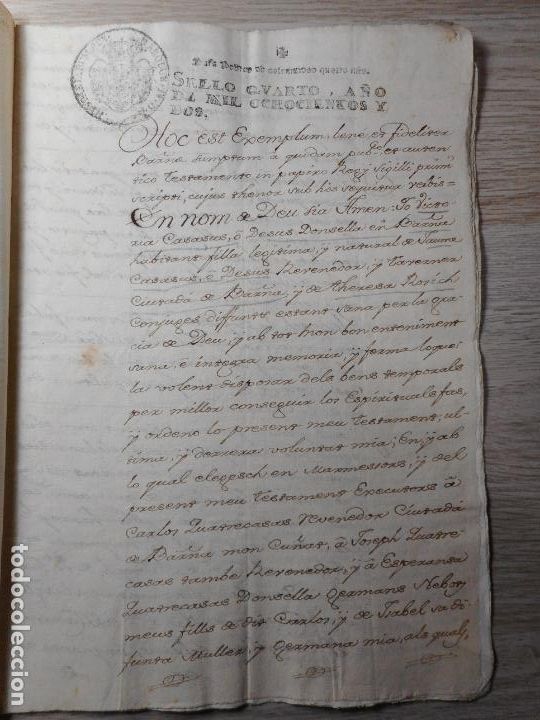 SELLO QVARTO, AÑO
DE MIL OCHOCIENTOS Y
DOS.
Hoc est Exemplum bene et fideliter
Barña sumptum à quodam pub.co et auten
tico testamento in papiro Regy Sigilli primi
scripti, cujus thenor sub hos sequitur verbis=
En nom de Deu sia Amen: Jo Victo
ria Casasus, ò Desus Donsella en Barña
habitant filla llegitima, y natural de Jaume
Casasus, ò Desus Revenedor, y Taverner
Ciutadà de Barña, y de Theresa
Conjuges diffunts estant sana per la gra
cia de Deu, y ab tot mon bon enteniment
sana è integra memoria, y ferma loque
la volent disposar dels bens temporals
per millor conseguir los Espirituals fas,
y ordeno lo present meu testament, ul
tima, y derrera voluntat mia; En, y ab
lo qual elegesch en Marmessors, y del
present meu testament Executors à
Carlos Quatrecasas revenedor Ciutadà
de Barña mon Cuñat, à Joseph Quatre
casas també Revenedor, y à Esperansa
Quatrecasas Donsella Germans Nebots
meus fills de dit Carlos, y de Isabel sa di
funta Muller, y Germana mia, als quals,
todocoleccion